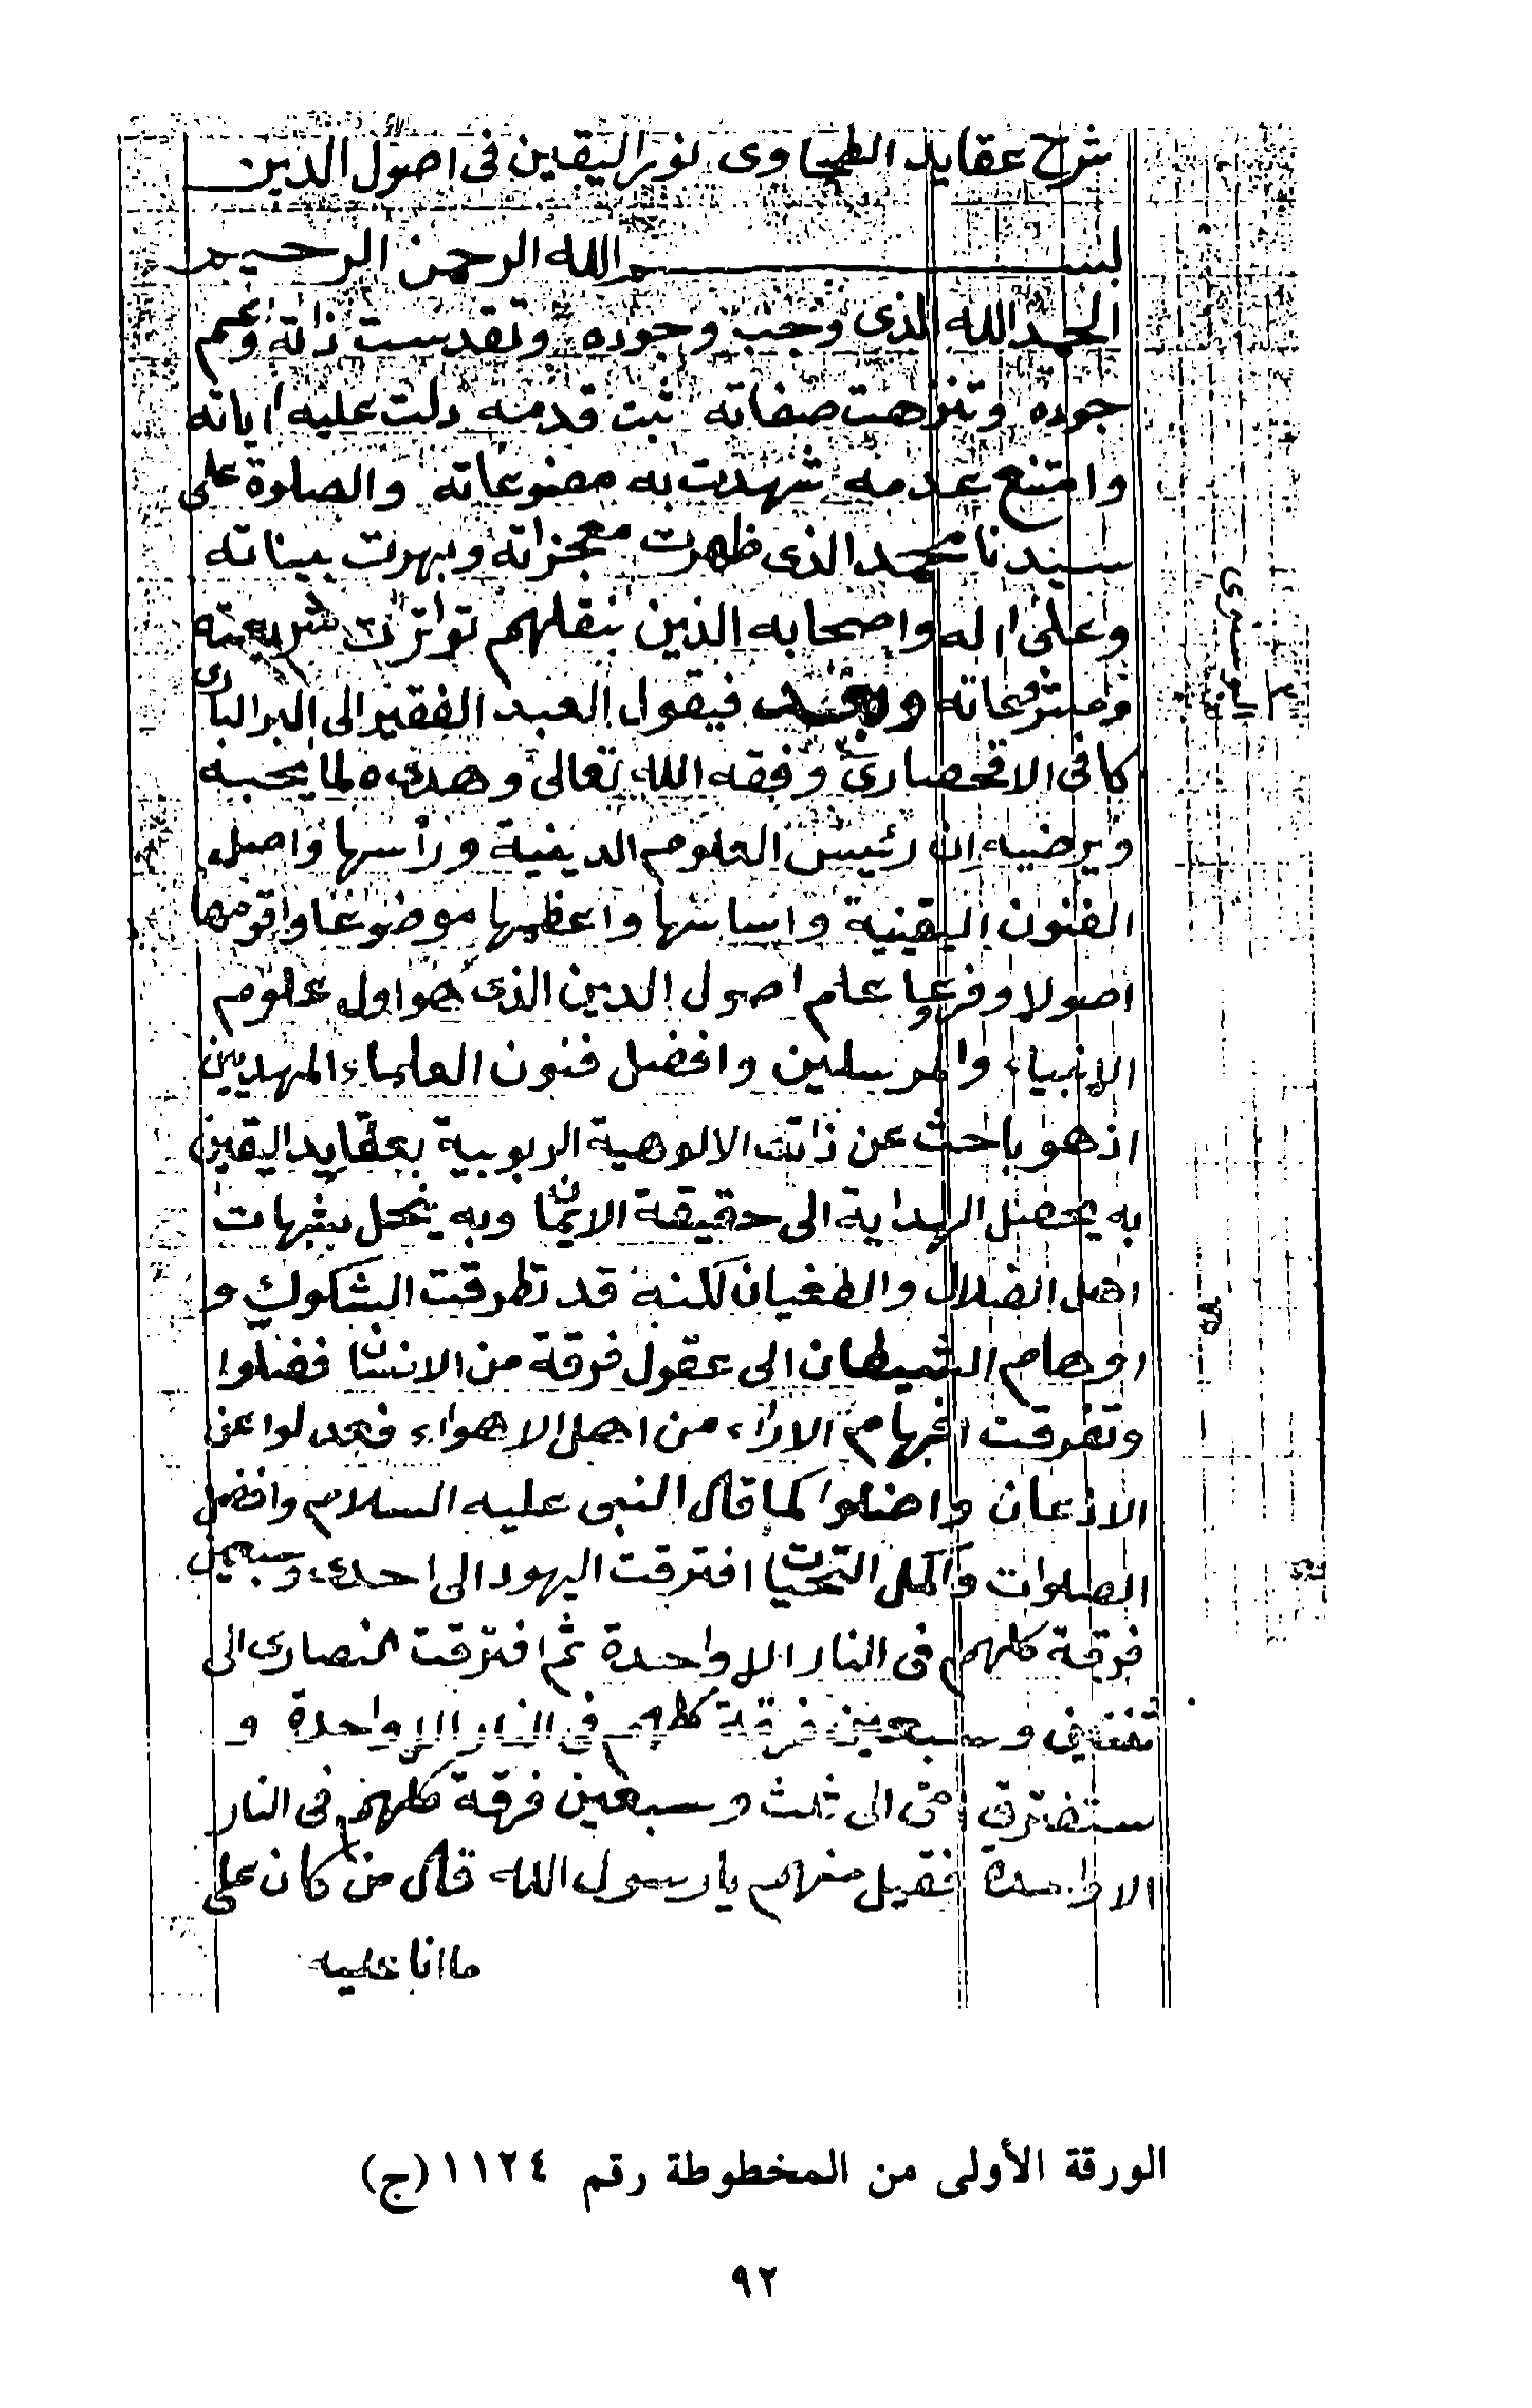 شرح عقايد الطحاوى نور اليقين فى اصول الدين
بسم الله الرحمن الرحيم
الحمد لله الذى وجب وجوده وتقدست ذاته وعم
جوده وتنزهت صفاته ثبت قدمه دلت عليه اياته
وامتنع عدمه شهدت به مصنوعاته والصلوة على
سيدنا محمد الذى ظهرت معجزاته وبهرت بيناته
وعلى اله واصحابه الذين بنقلهم تواترت شريعته
وبعد فيقول العبد الفقير الى البر البارى
كافى الاقحصارى وفقه الله تعالى وهداه لما يحبه
ويرضيه ان رئيس العلوم الدينية ورأسها واصل
الفنون اليقينية واساسها واعظمها موضوعا واقومها
اصولا وفرعا علم اصول الدين الذى هو اول علوم
الانبياء والمرسلين وافضل فنون العلماء المهديين
اذ هو باحث عن ذات الالوهية الربوبية بعقايد اليقين
به يحصل الهداية الى حقيقة الايمان وبه ينحل شبهات
اهل الضلال والطغيان لكنه قد تطرقت الشكوك و
اوهام الشيطان الى عقول فرقة من الانسان فضلوا
وتفرقت افهام الاراء من اهل الاهواء فعدلوا عن
الاذعان واضلوا كما قال النبى عليه السلام وافضل
الصلوات واكمل التحيات افترقت اليهود الى احدى وسبعين
فرقة كلهم فى النار الا واحدة ثم افترقت النصارى الى
ثنتين وسبعين فرقة كلهم فى النار الا واحدة و
ستفترق امتى الى ثلث وسبعين فرقة كلهم فى النار
الا واحدة فقيل منهم يا رسول الله قال من كان على
ما انا عليه
الورقة الأولى من المخطوطة رقم ١١٢٤ (ج)
٩٢